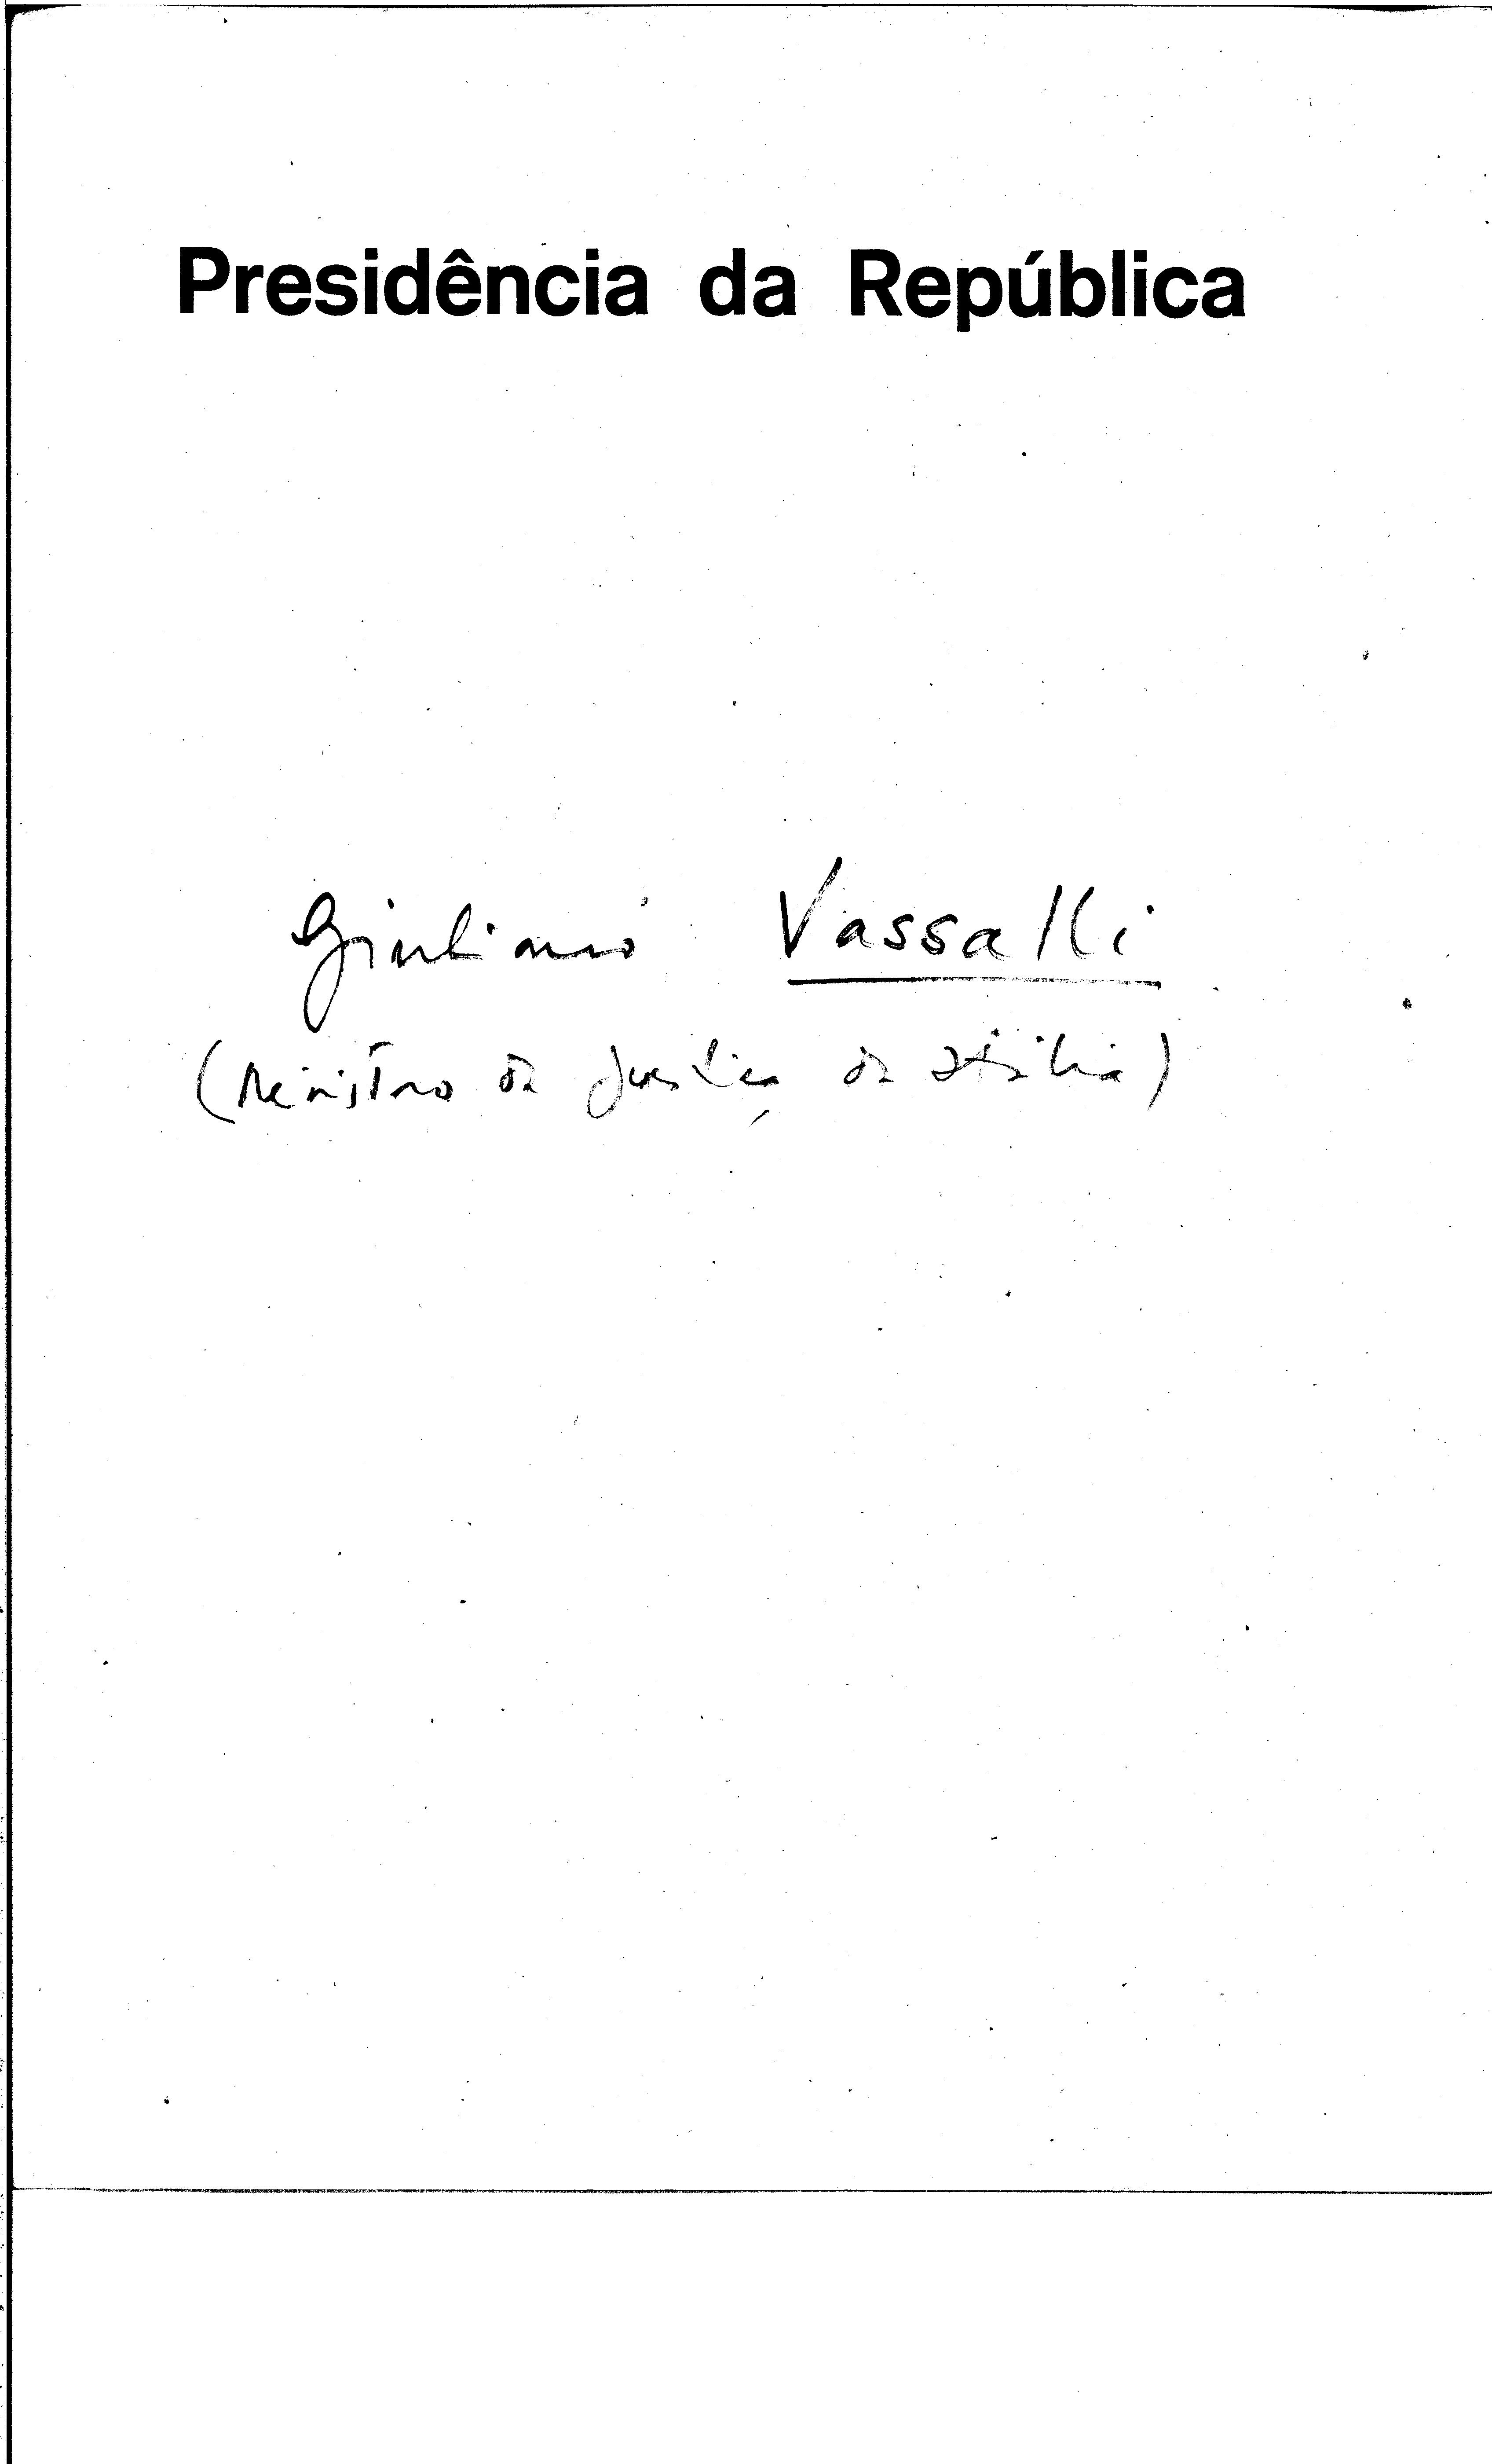 Presidência da República
Giuliano Vassalli
(Ministro da Justiça da Itália)